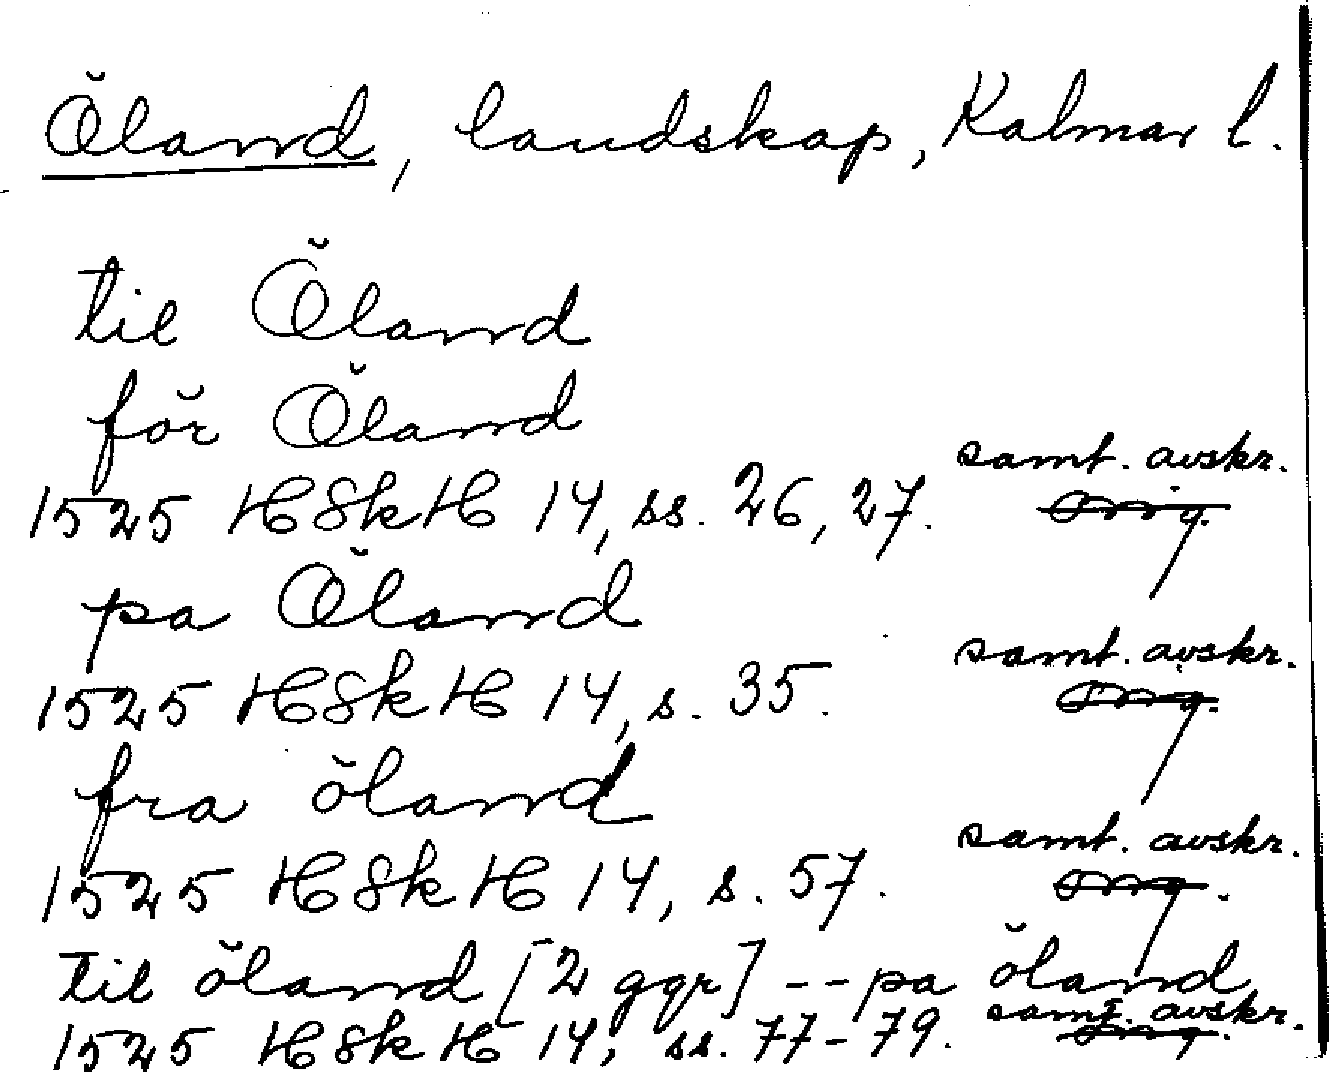 Öland, landskap, Kalmar l.
til Öland
för Öland
samt. avskr.
1525 HSkH 14, ss. 26, 27. orig.
pa Öland
samt. avskr.
1525 HSkH 14, s. 35. orig.
fra öland
samt. avskr.
1525 HSkH 14, s. 57. orig.
til öland [2 ggr] -- pa öland
samt. avskr.
1525 HSkH 14, ss. 77-79. orig.